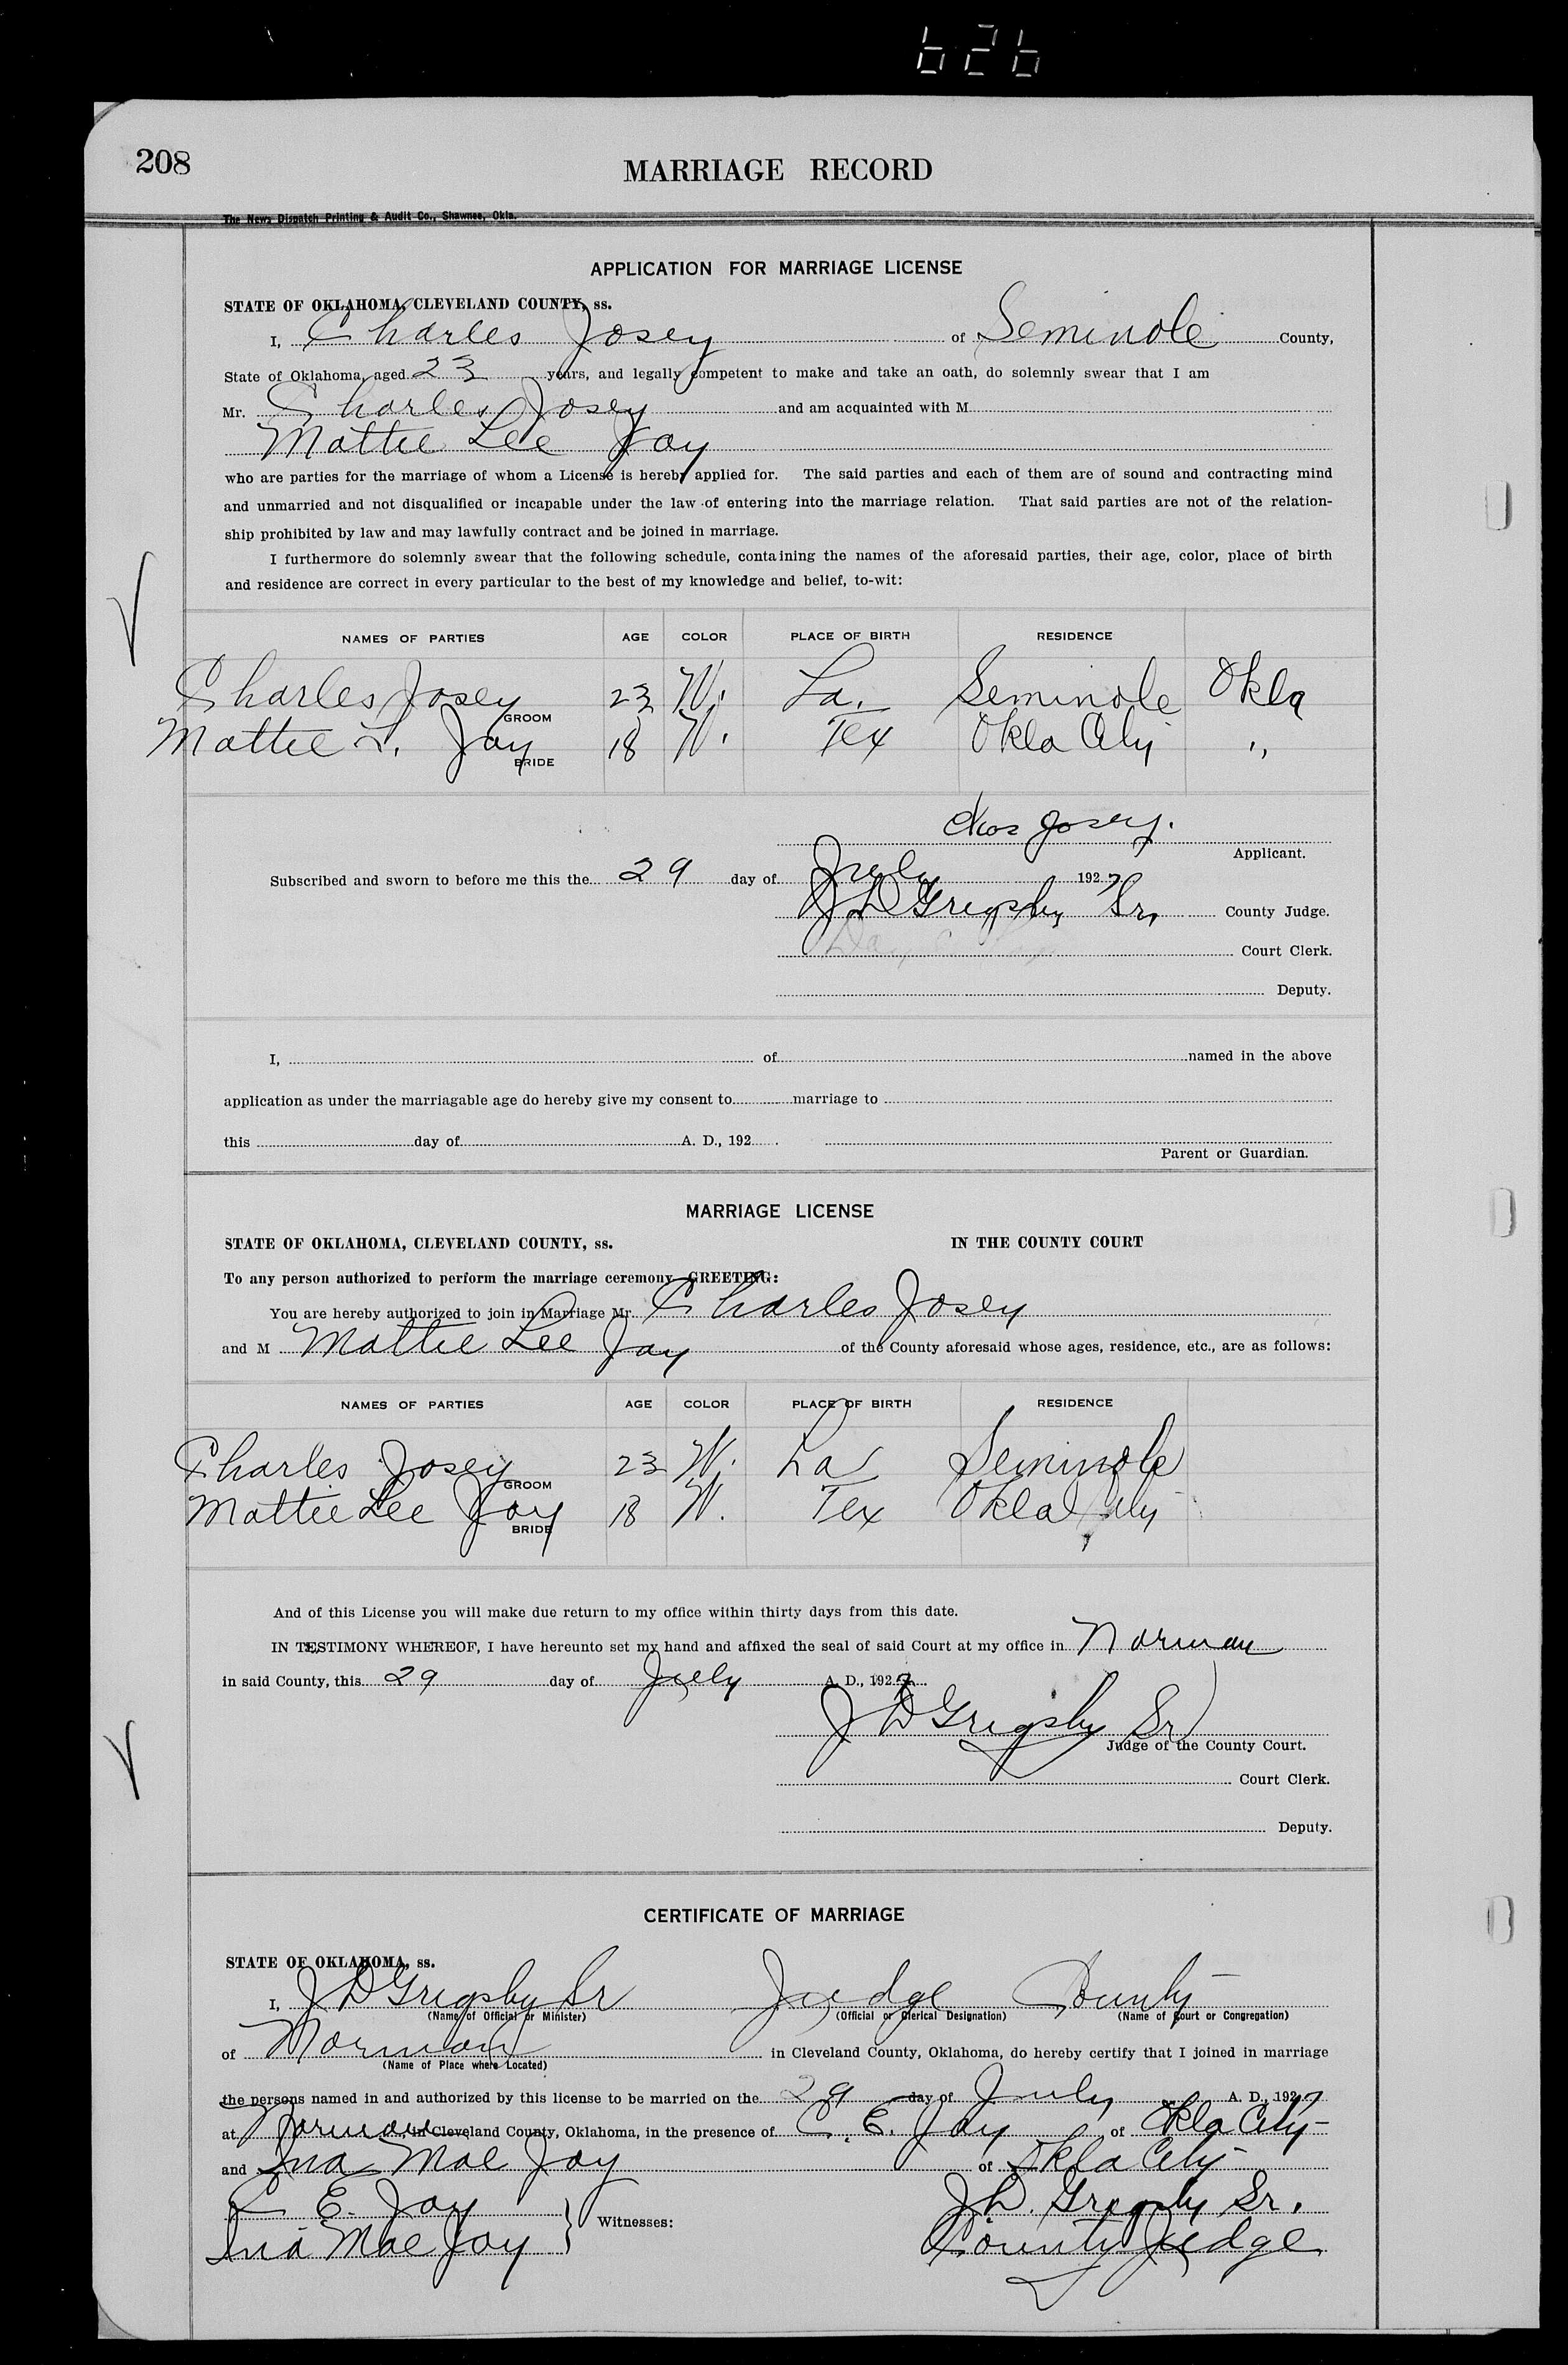 626
208
MARRIAGE RECORD
The News Dispatch Printing & Audit Co., Shawnee, Okla.
APPLICATION FOR MARRIAGE LICENSE
STATE OF OKLAHOMA, CLEVELAND COUNTY, ss.
I, Charles Josey of Seminole County,
State of Oklahoma, aged 23 years, and legally competent to make and take an oath, do solemnly swear that I am
Mr. Charles Josey and am acquainted with M
Mattie Lee Jay
who are parties for the marriage of whom a License is hereby applied for. The said parties and each of them are of sound and contracting mind
and unmarried and not disqualified or incapable under the law of entering into the marriage relation. That said parties are not of the relation-
ship prohibited by law and may lawfully contract and be joined in marriage.
I furthermore do solemnly swear that the following schedule, containing the names of the aforesaid parties, their age, color, place of birth
and residence are correct in every particular to the best of my knowledge and belief, to-wit:
NAMES OF PARTIES AGE COLOR PLACE OF BIRTH RESIDENCE
Charles Josey GROOM 23 W. La. Seminole Okla
Mattie L. Jay BRIDE 18 W. Tex Okla City "
Chas Josey.
Applicant.
Subscribed and sworn to before me this the 29 day of July 1927
J D Grigsby Sr, County Judge.
Court Clerk.
Deputy.
I, of named in the above
application as under the marriagable age do hereby give my consent to marriage to
this day of A. D., 192 .
Parent or Guardian.
MARRIAGE LICENSE
STATE OF OKLAHOMA, CLEVELAND COUNTY, ss. IN THE COUNTY COURT
To any person authorized to perform the marriage ceremony—GREETING:
You are hereby authorized to join in Marriage Mr. Charles Josey
and M Mattie Lee Jay of the County aforesaid whose ages, residence, etc., are as follows:
NAMES OF PARTIES AGE COLOR PLACE OF BIRTH RESIDENCE
Charles Josey GROOM 23 W. La Seminole
Mattie Lee Jay BRIDE 18 W. Tex Okla City
And of this License you will make due return to my office within thirty days from this date.
IN TESTIMONY WHEREOF, I have hereunto set my hand and affixed the seal of said Court at my office in Norman
in said County, this 29 day of July A. D., 1927
J D Grigsby Sr
Judge of the County Court.
Court Clerk.
Deputy.
CERTIFICATE OF MARRIAGE
STATE OF OKLAHOMA, ss.
I, J D Grigsby Sr Judge County
(Name of Official or Minister) (Official or Clerical Designation) (Name of Court or Congregation)
of Norman in Cleveland County, Oklahoma, do hereby certify that I joined in marriage
(Name of Place where Located)
the persons named in and authorized by this license to be married on the 29 day of July A. D., 1927
at Norman in Cleveland County, Oklahoma, in the presence of C. E. Jay of Okla City
and Ina Mae Jay of Okla City
C E. Jay J D. Grigsby Sr.
Witnesses:
Ina Mae Jay County Judge